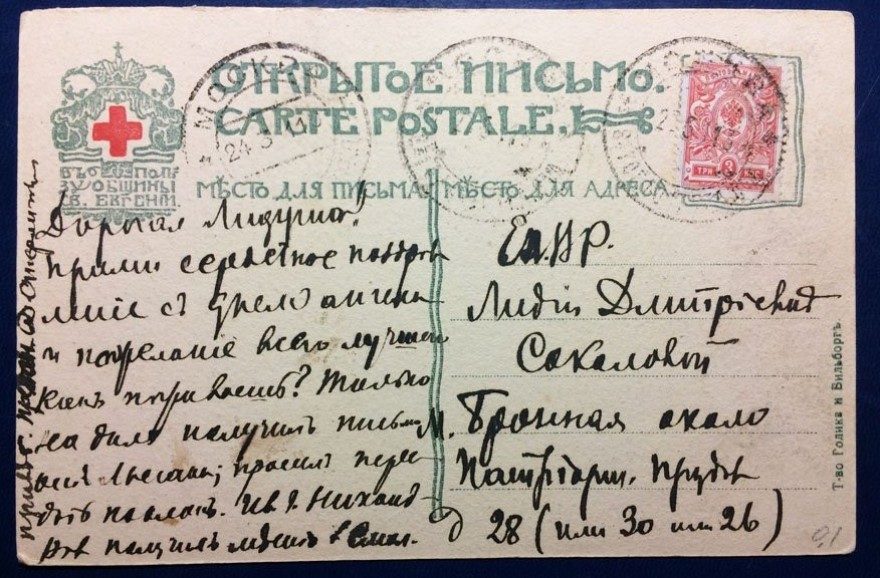 ОТКРЫТОЕ ПИСЬМО.
CARTE POSTALE.
МОСКВА
24 3
ВЪ ПОЛЬЗУ ОБЩИНЫ
СВ. ЕВГЕНІИ
МѢСТО ДЛЯ ПИСЬМА
МѢСТО ДЛЯ АДРЕСА
3
ТРИ
Дорогая Лидуша!
Прими сердечное поздрав
леніе съ днемъ ангела
и пожеланіе всего лучшаго
какъ поживаешь? Только
на дняхъ получилъ письмо
просилъ пере
дать поклонъ. Ив
получилъ мѣсто в Смол.
привѣтъ
Ея.ВР.
Лидіи Дмитріевнѣ
Сокаловой
М. Бронная около
Патріарш. Прудов
д 28 (или 30 или 26)
Т-во Голике и Вильборгъ